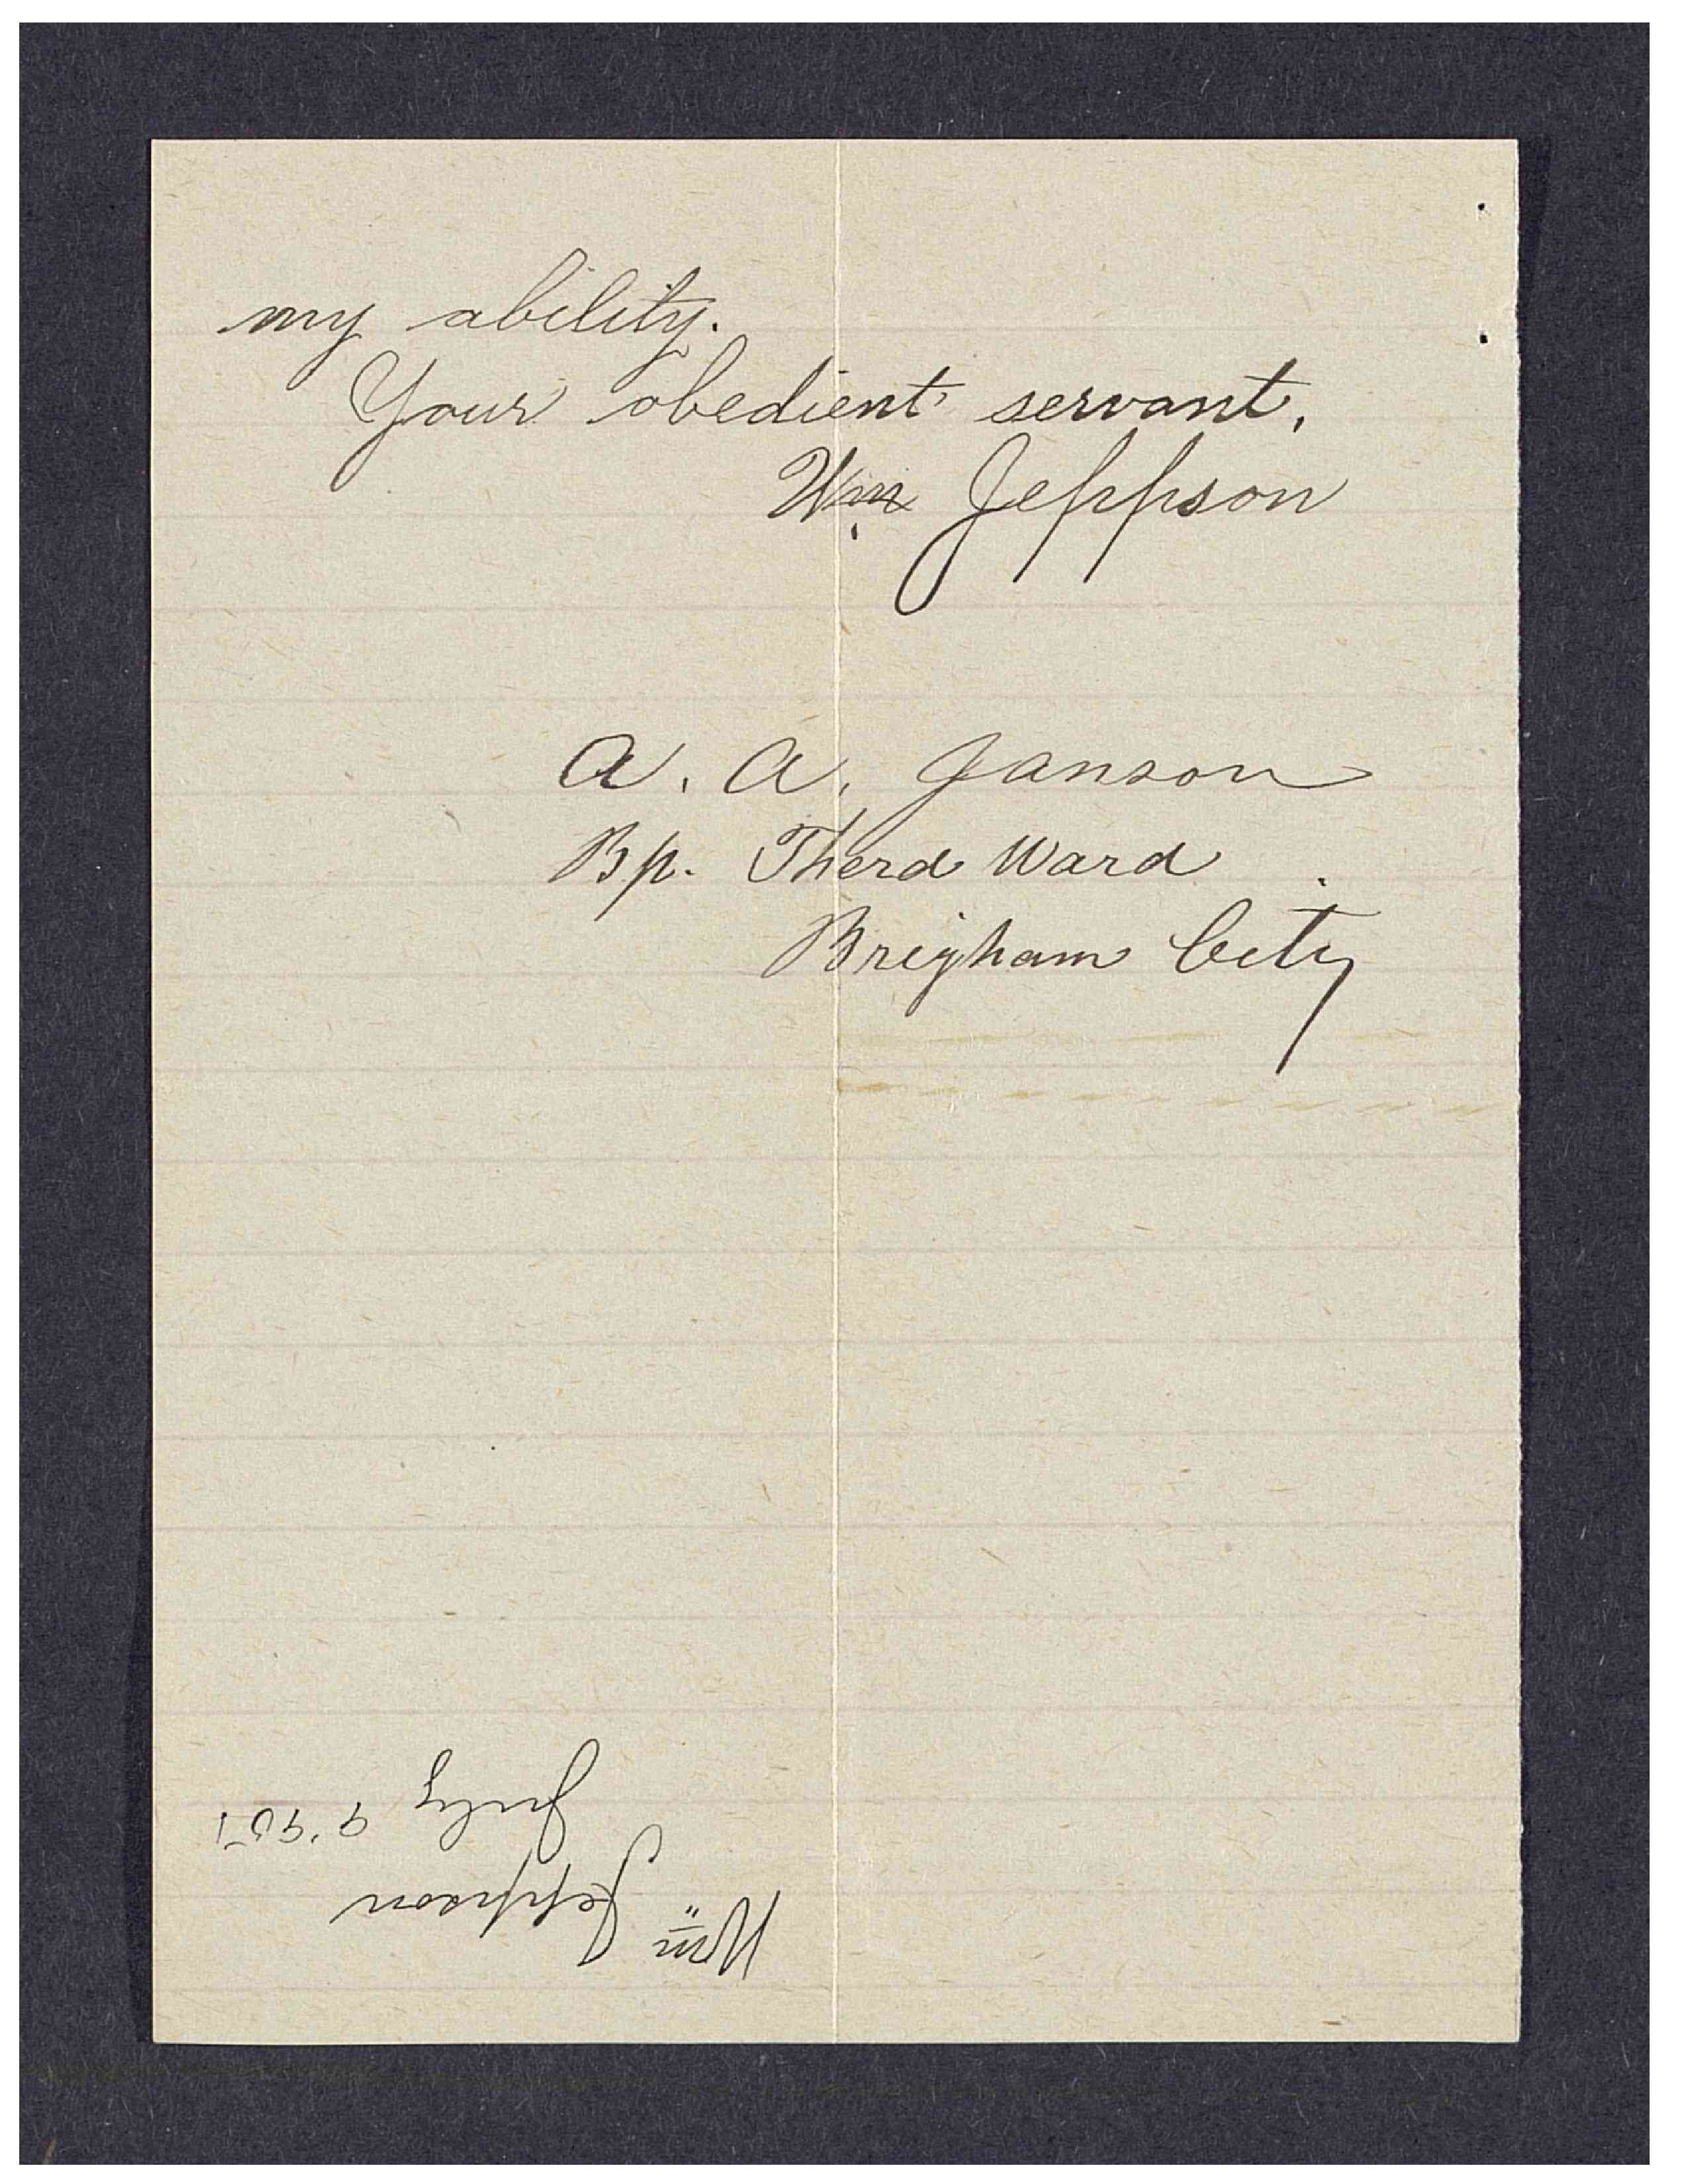 my ability.
Your obedient servant,
Wm Jeppson
A. A. Janson
Bp. Therd Ward.
Brigham City
Wm Jeppson
July 9 '01